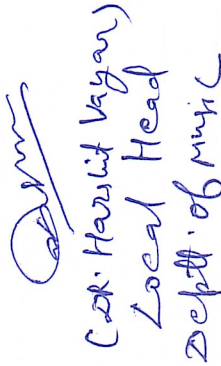 (DR. Harshit Vayar)
Local Head
Deptt. of Music